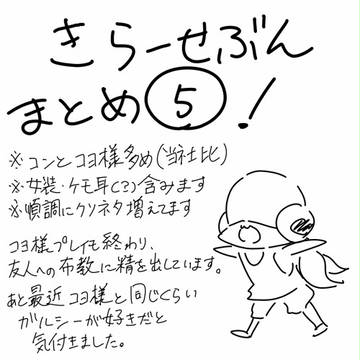 きらーせぶん
まとめ⑤!
※コンとコヨ様多め(当社比)
※女装・ケモ耳(?)含みます
※順調にクソネタ増えてます
コヨ様プレイも終わり、
友人への布教に精を出しています。
あと最近コヨ様と同じくらい
ガルシーが好きだと
気付きました。